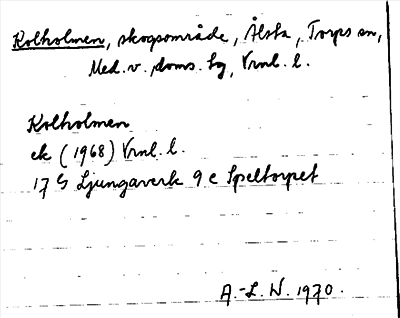 Kolholmen, skogsområde, Ålsta, Torps sn,
Med. v. doms. tg, Vrnl. l.
Kolholmen
ek (1968) Vrnl. l.
17 G Ljungaverk 9 c Speltorpet
A.-L. W. 1970.